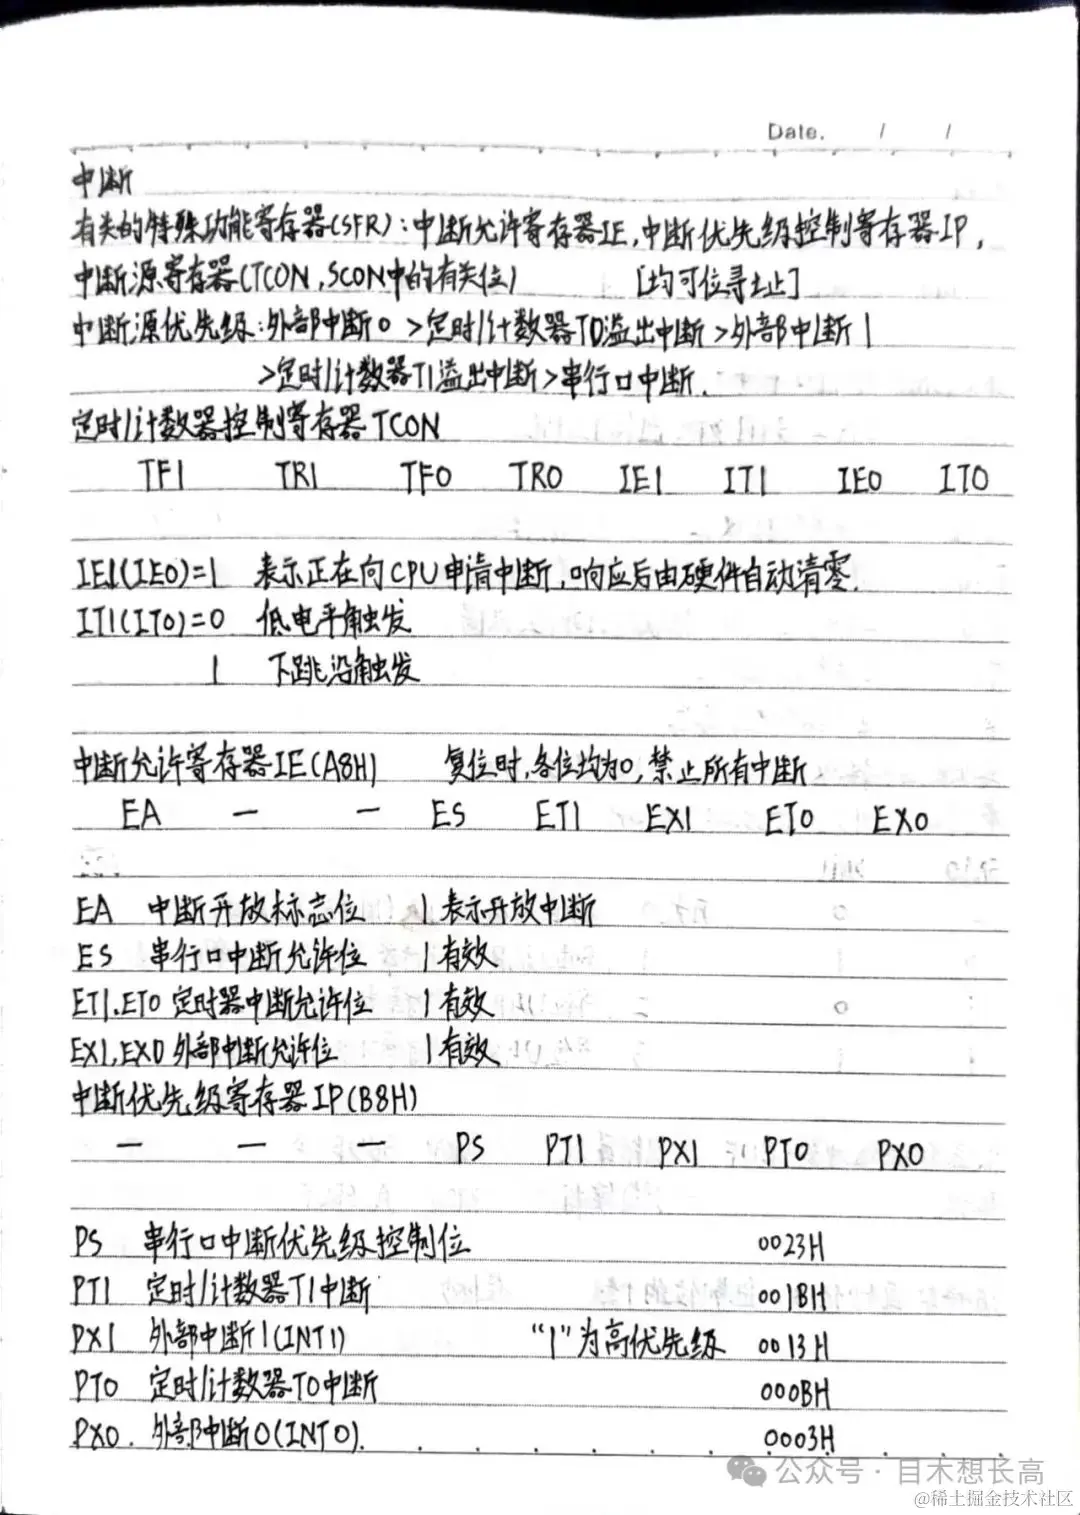 Date. / /
中断
有关的特殊功能寄存器(SFR):中断允许寄存器IE,中断优先级控制寄存器IP,
中断源寄存器(TCON,SCON中的有关位) [均可位寻址]
中断源优先级:外部中断0 >定时/计数器T0溢出中断>外部中断1
>定时/计数器T1溢出中断>串行口中断.
定时/计数器控制寄存器TCON
TF1 TR1 TF0 TR0 IE1 IT1 IE0 IT0
IE1(IE0)=1 表示正在向CPU申请中断,响应后由硬件自动清零.
IT1(IT0)=0 低电平触发
1 下跳沿触发
中断允许寄存器IE(A8H) 复位时,各位均为0,禁止所有中断
EA — — ES ET1 EX1 ET0 EX0
EA 中断开放标志位 1 表示开放中断
ES 串行口中断允许位 1有效
ET1.ET0 定时器中断允许位 1有效
EX1.EX0 外部中断允许位 1有效
中断优先级寄存器IP(B8H)
— — — PS PT1 PX1 PT0 PX0
PS 串行口中断优先级控制位 0023H
PT1 定时/计数器T1中断 001BH
PX1 外部中断1(INT1) “1”为高优先级 0013H
PT0 定时/计数器T0中断 000BH
PX0. 外部中断0(INT0). 0003H
公众号·目木想长高
@稀土掘金技术社区